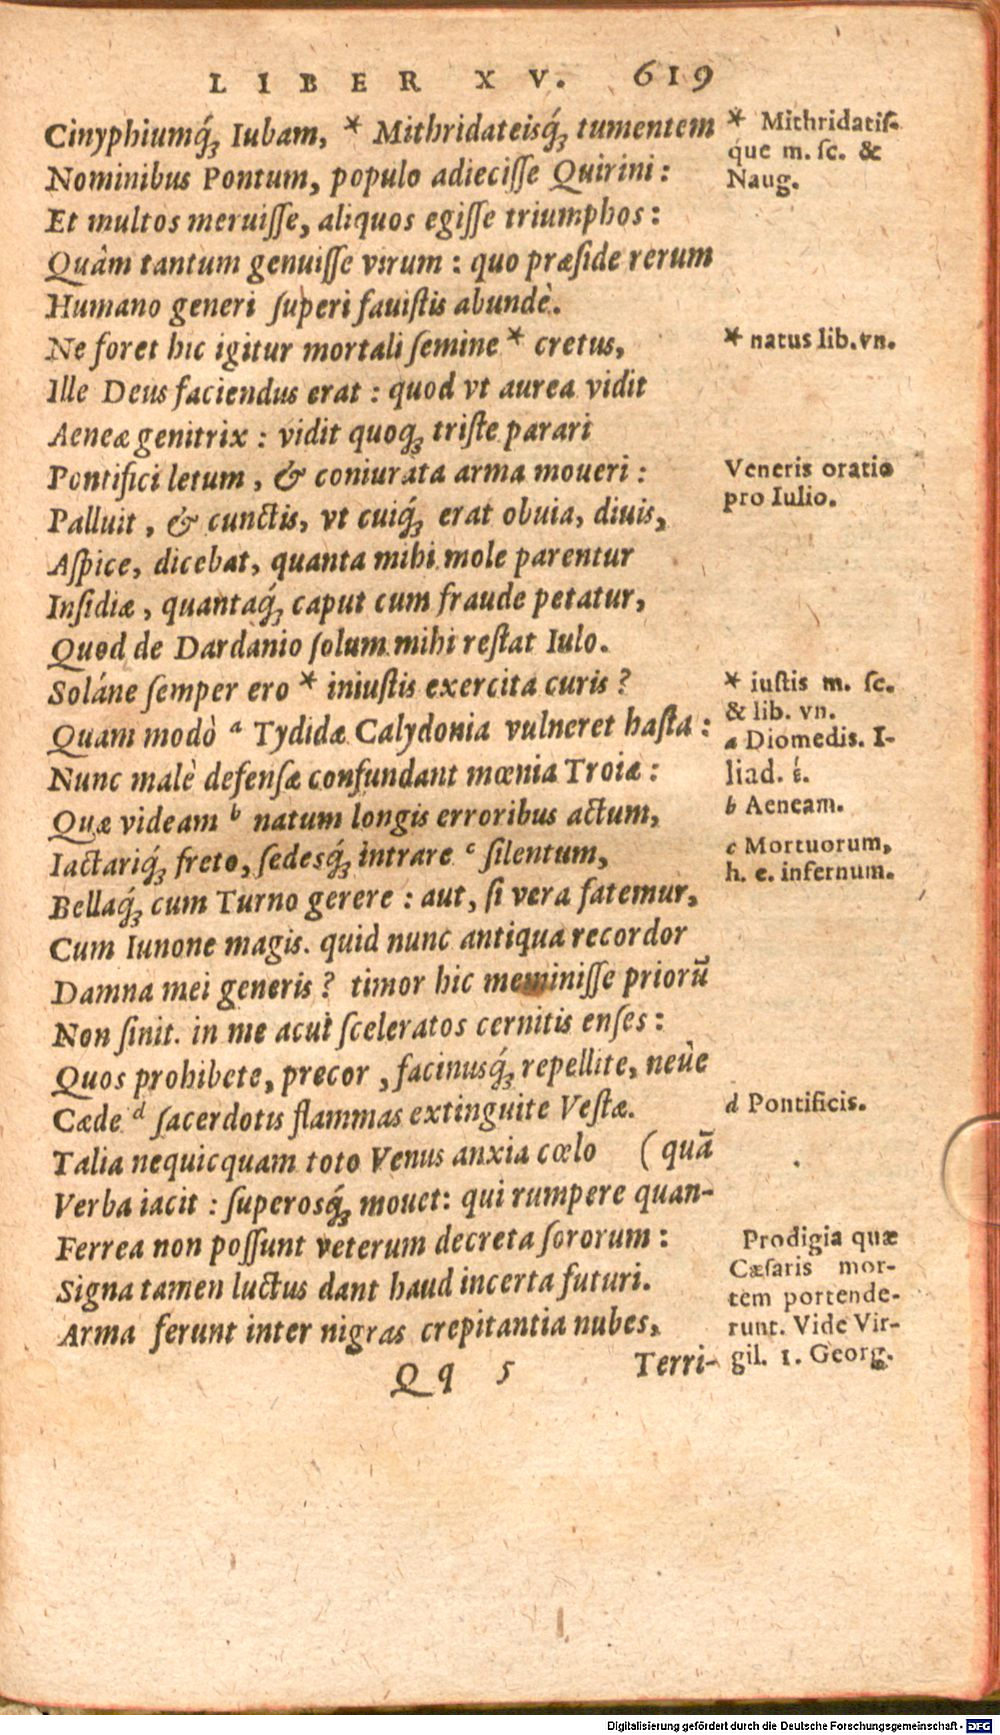 LIBER XV. 619
Cinyphiumq́ꝫ Iubam, * Mithridateisq́ꝫ tumentem
Nominibus Pontum, populo adiecisſe Quirini:
Et multos meruisſe, aliquos egisſe triumphos:
Quàm tantum genuisſe virum: quo præſide rerum
Humano generi ſuperi fauiſtis abundè.
Ne foret hic igitur mortali ſemine * cretus,
Ille Deus faciendus erat: quod vt aurea vidit
Aeneæ genitrix: vidit quoqꝫ triſte parari
Pontifici letum, & coniurata arma moueri:
Palluit, & cunctis, vt cuiq́ꝫ erat obuia, diuis,
Aſpice, dicebat, quanta mihi mole parentur
Inſidiæ, quantaq́ꝫ caput cum fraude petatur,
Quod de Dardanio ſolum mihi reſtat Iulo.
Soláne ſemper ero * iniuſtis exercita curis?
Quam modò a Tydidæ Calydonia vulneret haſta:
Nunc malè defenſæ confundant mœnia Troiæ:
Quæ videam b natum longis erroribus actum,
Iactariq́ꝫ freto, ſedesq́ꝫ intrare c ſilentum,
Bellaq́ꝫ cum Turno gerere: aut, ſi vera fatemur,
Cum Iunone magis. quid nunc antiqua recordor
Damna mei generis? timor hic meminisſe priorū
Non ſinit. in me acui ſceleratos cernitis enſes:
Quos prohibete, precor, facinusq́ꝫ repellite, neùe
Cæde d ſacerdotis flammas extinguite Veſtæ.
Talia nequicquam toto Venus anxia cœlo (quā
Verba iacit: ſuperosq́ꝫ mouet: qui rumpere quan-
Ferrea non poſſunt veterum decreta ſororum:
Signa tamen luctus dant haud incerta futuri.
Arma ferunt inter nigras crepitantia nubes,
Qq 5 Terri-
* Mithridatiſ-
que m. ſc. &
Naug.
* natus lib. vn.
Veneris oratio
pro Iulio.
* iuſtis m. ſc.
& lib. vn.
a Diomedis. I-
liad. έ.
b Aeneam.
c Mortuorum,
h. e. infernum.
d Pontificis.
Prodigia quæ
Cæſaris mor-
tem portende-
runt. Vide Vir-
gil. 1. Georg.
Digitalisierung gefördert durch die Deutsche Forschungsgemeinschaft - DFG